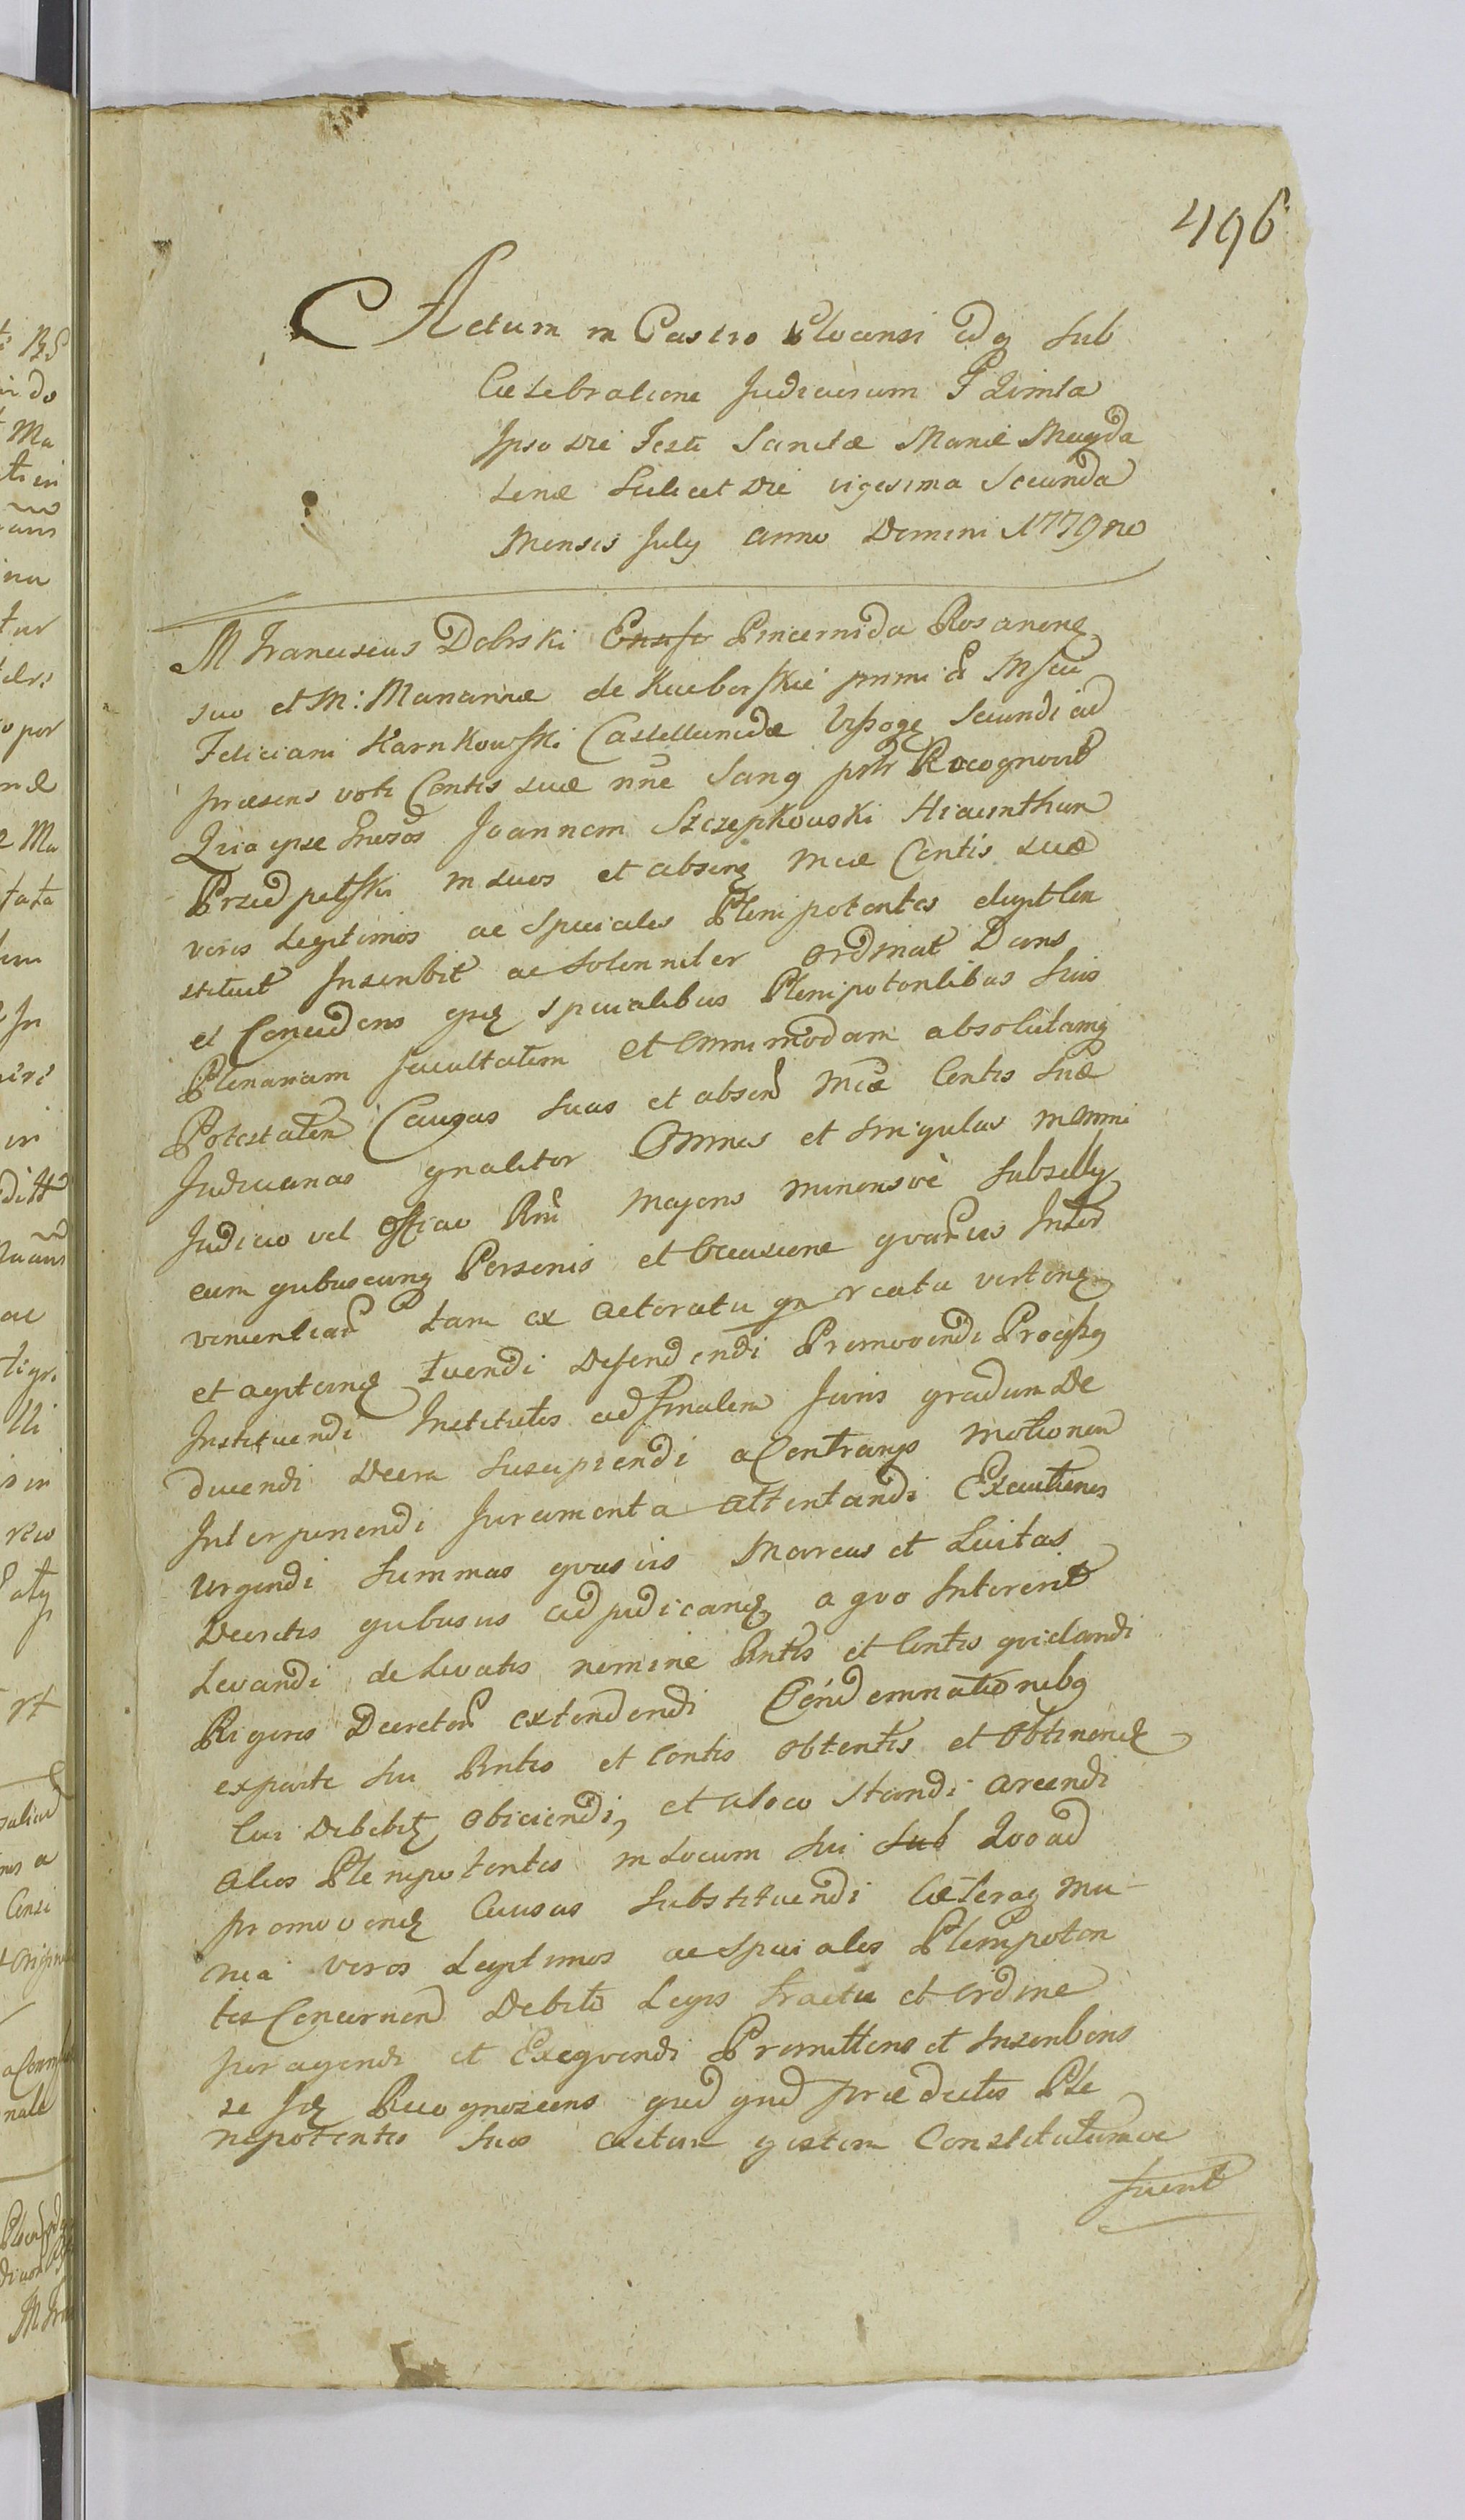 496
Actum in Castro Plocensi idq sub
Celebratione Judiciorum
Ipso die Festi Sanctæ Mariæ Magda
lenæ Scilicet die vigesima Secunda
Mensis July anno Domini 1779no
M Franciscus Dobrski Pincernida Rosanens
suo et M: Mariannæ de primi
Feliciani Karnkowski Castellanidæ Secundi ad
præsens voti Contis suæ nne Recognovit
Quia ipse Joannem Szczepkowski Hiacinthum
in suos et absens Contis suæ
veros Legitimos ac Speciales Plenipotentes
stituit Inscribit ac Solenniter ordinat Dans
et Concedens Specialibus Plenipotentibus suis
Plenariam facultatem et omnimodam absolutamq
Potestatem Causas suas et absen Contis suæ
Judiciarias gnaliter Omnes et singulas in omni
Judicio vel Officio Rni Majoris Minorisve Subsellij
cum quibuscunq Personis et Occasione quarumvis Inter
venientiarum tam ex actoratu qm reatu verten
et agitan tuendi Defendendi Promovendi Processq
Instituendi Institutos ad finalem Juris gradum De
ducendi Decra Suscipiendi a Contrarijs Motionem
Interponendi Juramenta attentandi Executiones
Urgendi Summas quasvis Marcas et Luitas
Decretis quibusvis adjudican a quo Intererit
Levandi de Levatis nomine et Contis quietandi
Rigores Decretor extendendi Condemnationibq
ex parte sui et Contis obtentis et Obtinen
Cui Debebit obiciendi, et a loco standi arcendi
alios Plenipotentes in Locum sui sub Quoad
promoven Causas Substituendi Cæteraq mu-
nia veros Legitimos ac Speciales Plenipoten
tes Concernen Debito Legis tractu et ordine
peragendi et Exequendi Promittens et Inscribens
se Recognoscens prædictos Ple
nipotentes suos actum gestum Constitutumve
fuerit